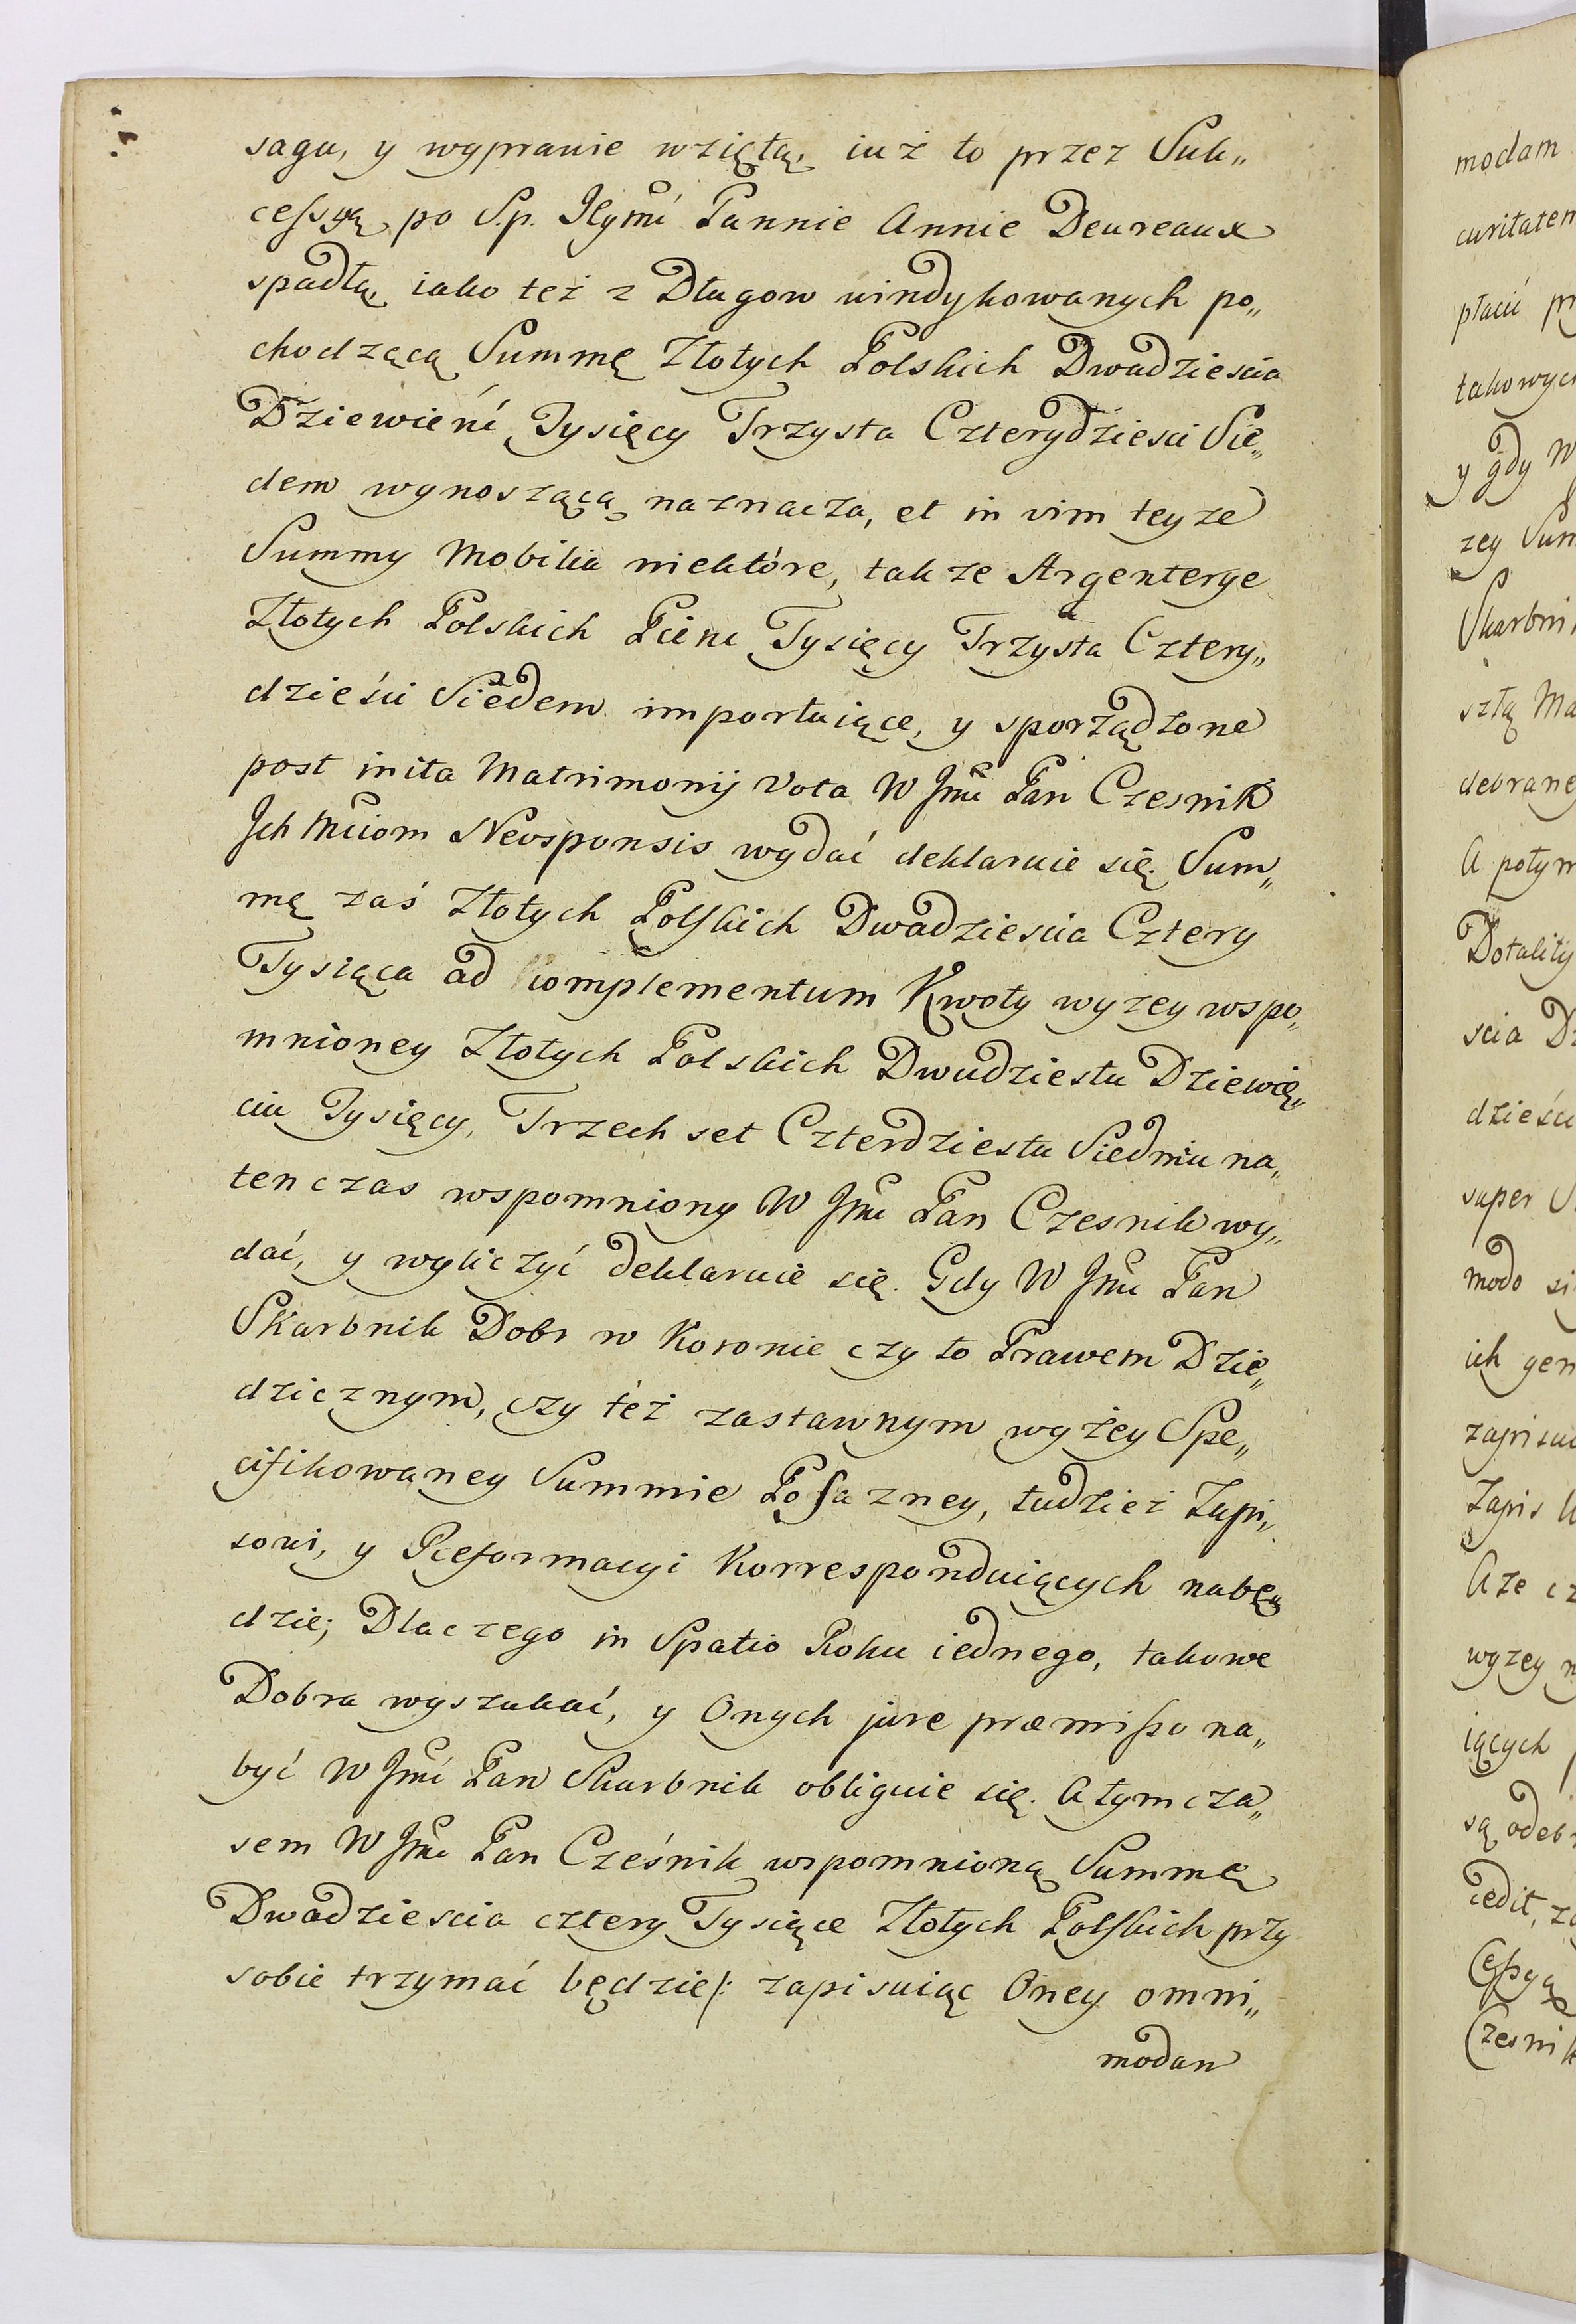 sagu, y wyprawie wziętą, iuż to przez Suk„
cessyą po S.p. Jeymć Pannie Annie Deureaux
spadłą, iako też z Długow windykowanych po„
chodzącą Summę Złotych Polskich Dwadziescia
Dziewieńć Tysięcy Trzysta Czterydziesci Sie„
dem wynoszącą naznacza, et in vim teyze
Summy Mobilia niektóre, takze Argenterye
Złotych Polskich Pienć Tysięcy Trzysta Cztery„
dzieści Siedem importuiące, y sporządzone
post inita Matrimonij Vota W Jmć Pan Czesnik
Ich Mciom Neosponsis wydać deklaruie się. Sum„
mę zaś Złotych Polskich Dwadziescia Cztery
Tysiąca ad complementum Kwoty wyzey wspo„
mnioney Złotych Polskich Dwudziestu Dziewię„
ciu Tysięcy, Trzech set Czterdziestu Siedmiu na„
tenczas wspomniony W Jmć Pan Czesnik wy„
dać, y wyliczyć deklaruie się. Gdy W Jmć Pan
Skarbnik Dobr w Koronie czy to Prawem Dzie„
dzicznym, czy też zastawnym wyżey Spe„
cifikowaney Summie Posazney, tudzież Zapi„
sowi, y Reformacyi Korresponduiących nabę„
dzie; Dlaczego in Spatio Roku iednego, takowe
Dobra wyszukać, y Onych jure præmisso na„
być W Jmć Pan Skarbnik obliguie się. A tym cza„
sem W Jmć Pan Cześnik wspomnioną Summę
Dwadziescia cztery Tysiące Złotych Polskich przy
sobie trzymać będzie/: zapisuiąc Oney omni„
modam
modam
curitatem
płacić
takowych
y gdy
zey Sum
Skarbni
szłą Ma
debraney
A potym
Dotality
scia
dzieści
super
modo
ich
zapisu
Zapis
Aze
wyzey
iących
są odeb
cedit,
Cessyą
Czesnik